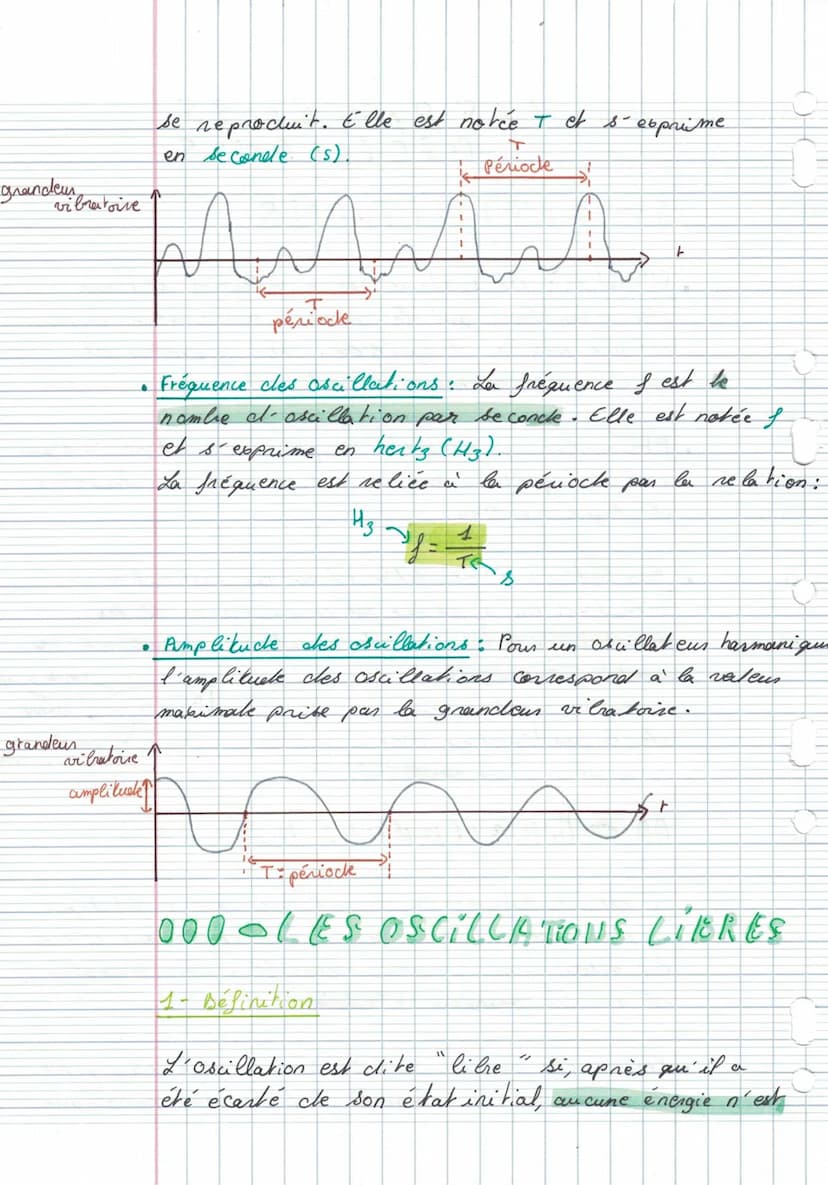 se reproduit. Elle est notée T et s'exprime
en seconde (s).
T
Période
grandeur
vibratoire
t
T
période
• Fréquence des oscillations : La fréquence f est le
nombre d'oscillation par seconde. Elle est notée f
et s'exprime en hertz (Hz).
La fréquence est reliée à la période par la relation :
Hz
f = 1/T
s
• Amplitude des oscillations : Pour un oscillateur harmonique
l'amplitude des oscillations correspond à la valeur
maximale prise par la grandeur vibratoire.
grandeur
vibratoire
amplitude
t
T = période
LES OSCILLATIONS LIBRES
1- Définition
L'oscillation est dite "libre" si, après qu'il a
été écarté de son état initial, aucune énergie n'est